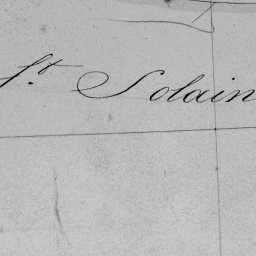 St. Solain